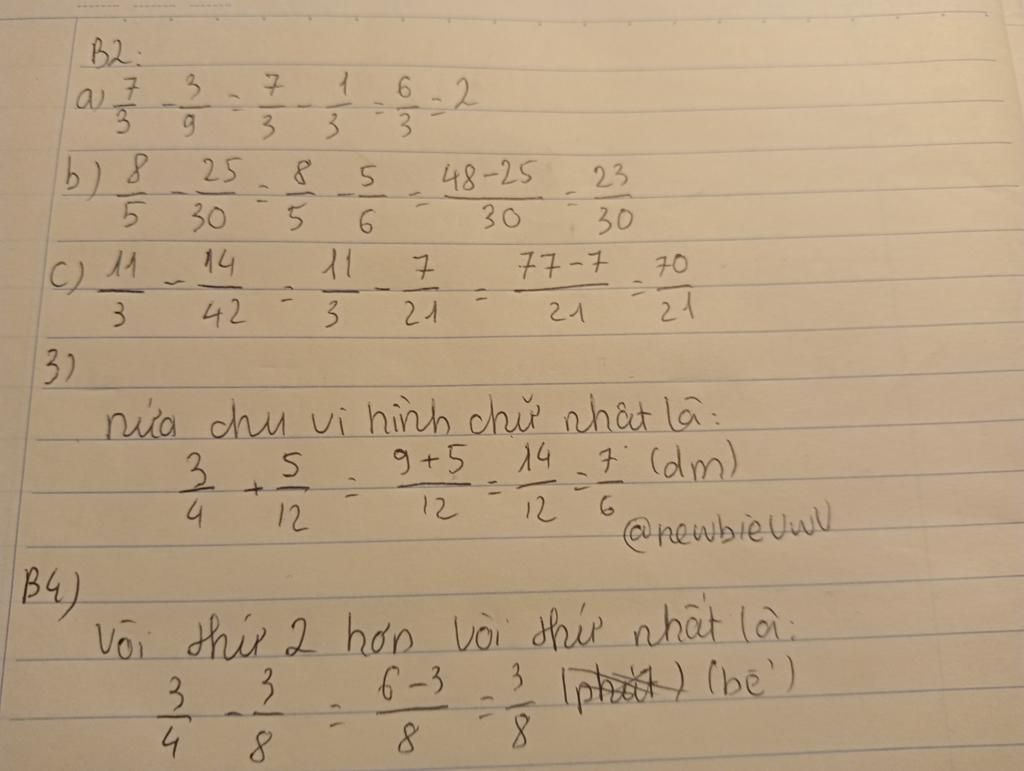 B2:
a) 7/3 - 3/9 = 7/3 - 1/3 = 6/3 = 2
b) 8/5 - 25/30 = 8/5 - 5/6 = 48-25/30 = 23/30
c) 11/3 - 14/42 = 11/3 - 7/21 = 77-7/21 = 70/21
3)
nửa chu vi hình chữ nhât là:
3/4 + 5/12 = 9+5/12 = 14/12 = 7/6 (dm)
@newbieUwU
B4)
Vòi thứ 2 hơn vòi thứ nhất là:
3/4 - 3/8 = 6-3/8 = 3/8 (phút) (bể)